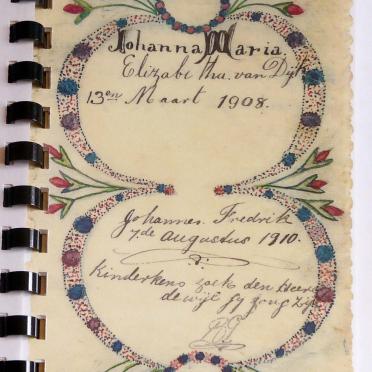 Johanna Maria
Elizabitha. van Dijk
13en Maart 1908.
Johannes. Fredrik
7.de Augustus 1910.
Kinderkens zoekt den Heere
dewijl gy jong zijt